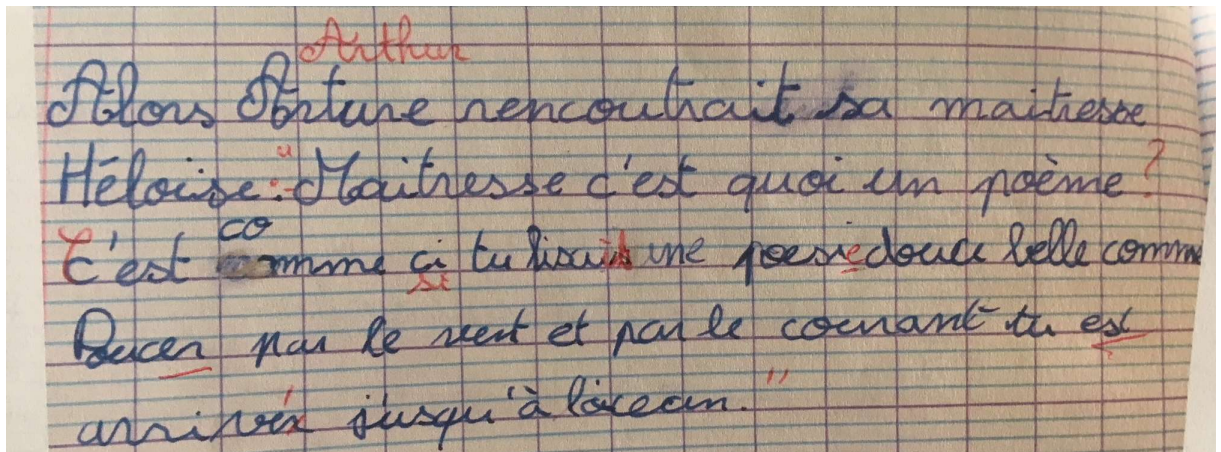 Arthur
Alors Arture rencontrait sa maitresse
Héloise : "Maitresse c'est quoi un poème ?
C'est comme ci tu lisais une poesie douce belle comme
si
Poucer par le vent et par le courant tu est
arrivé jusqu'à l'ocean."